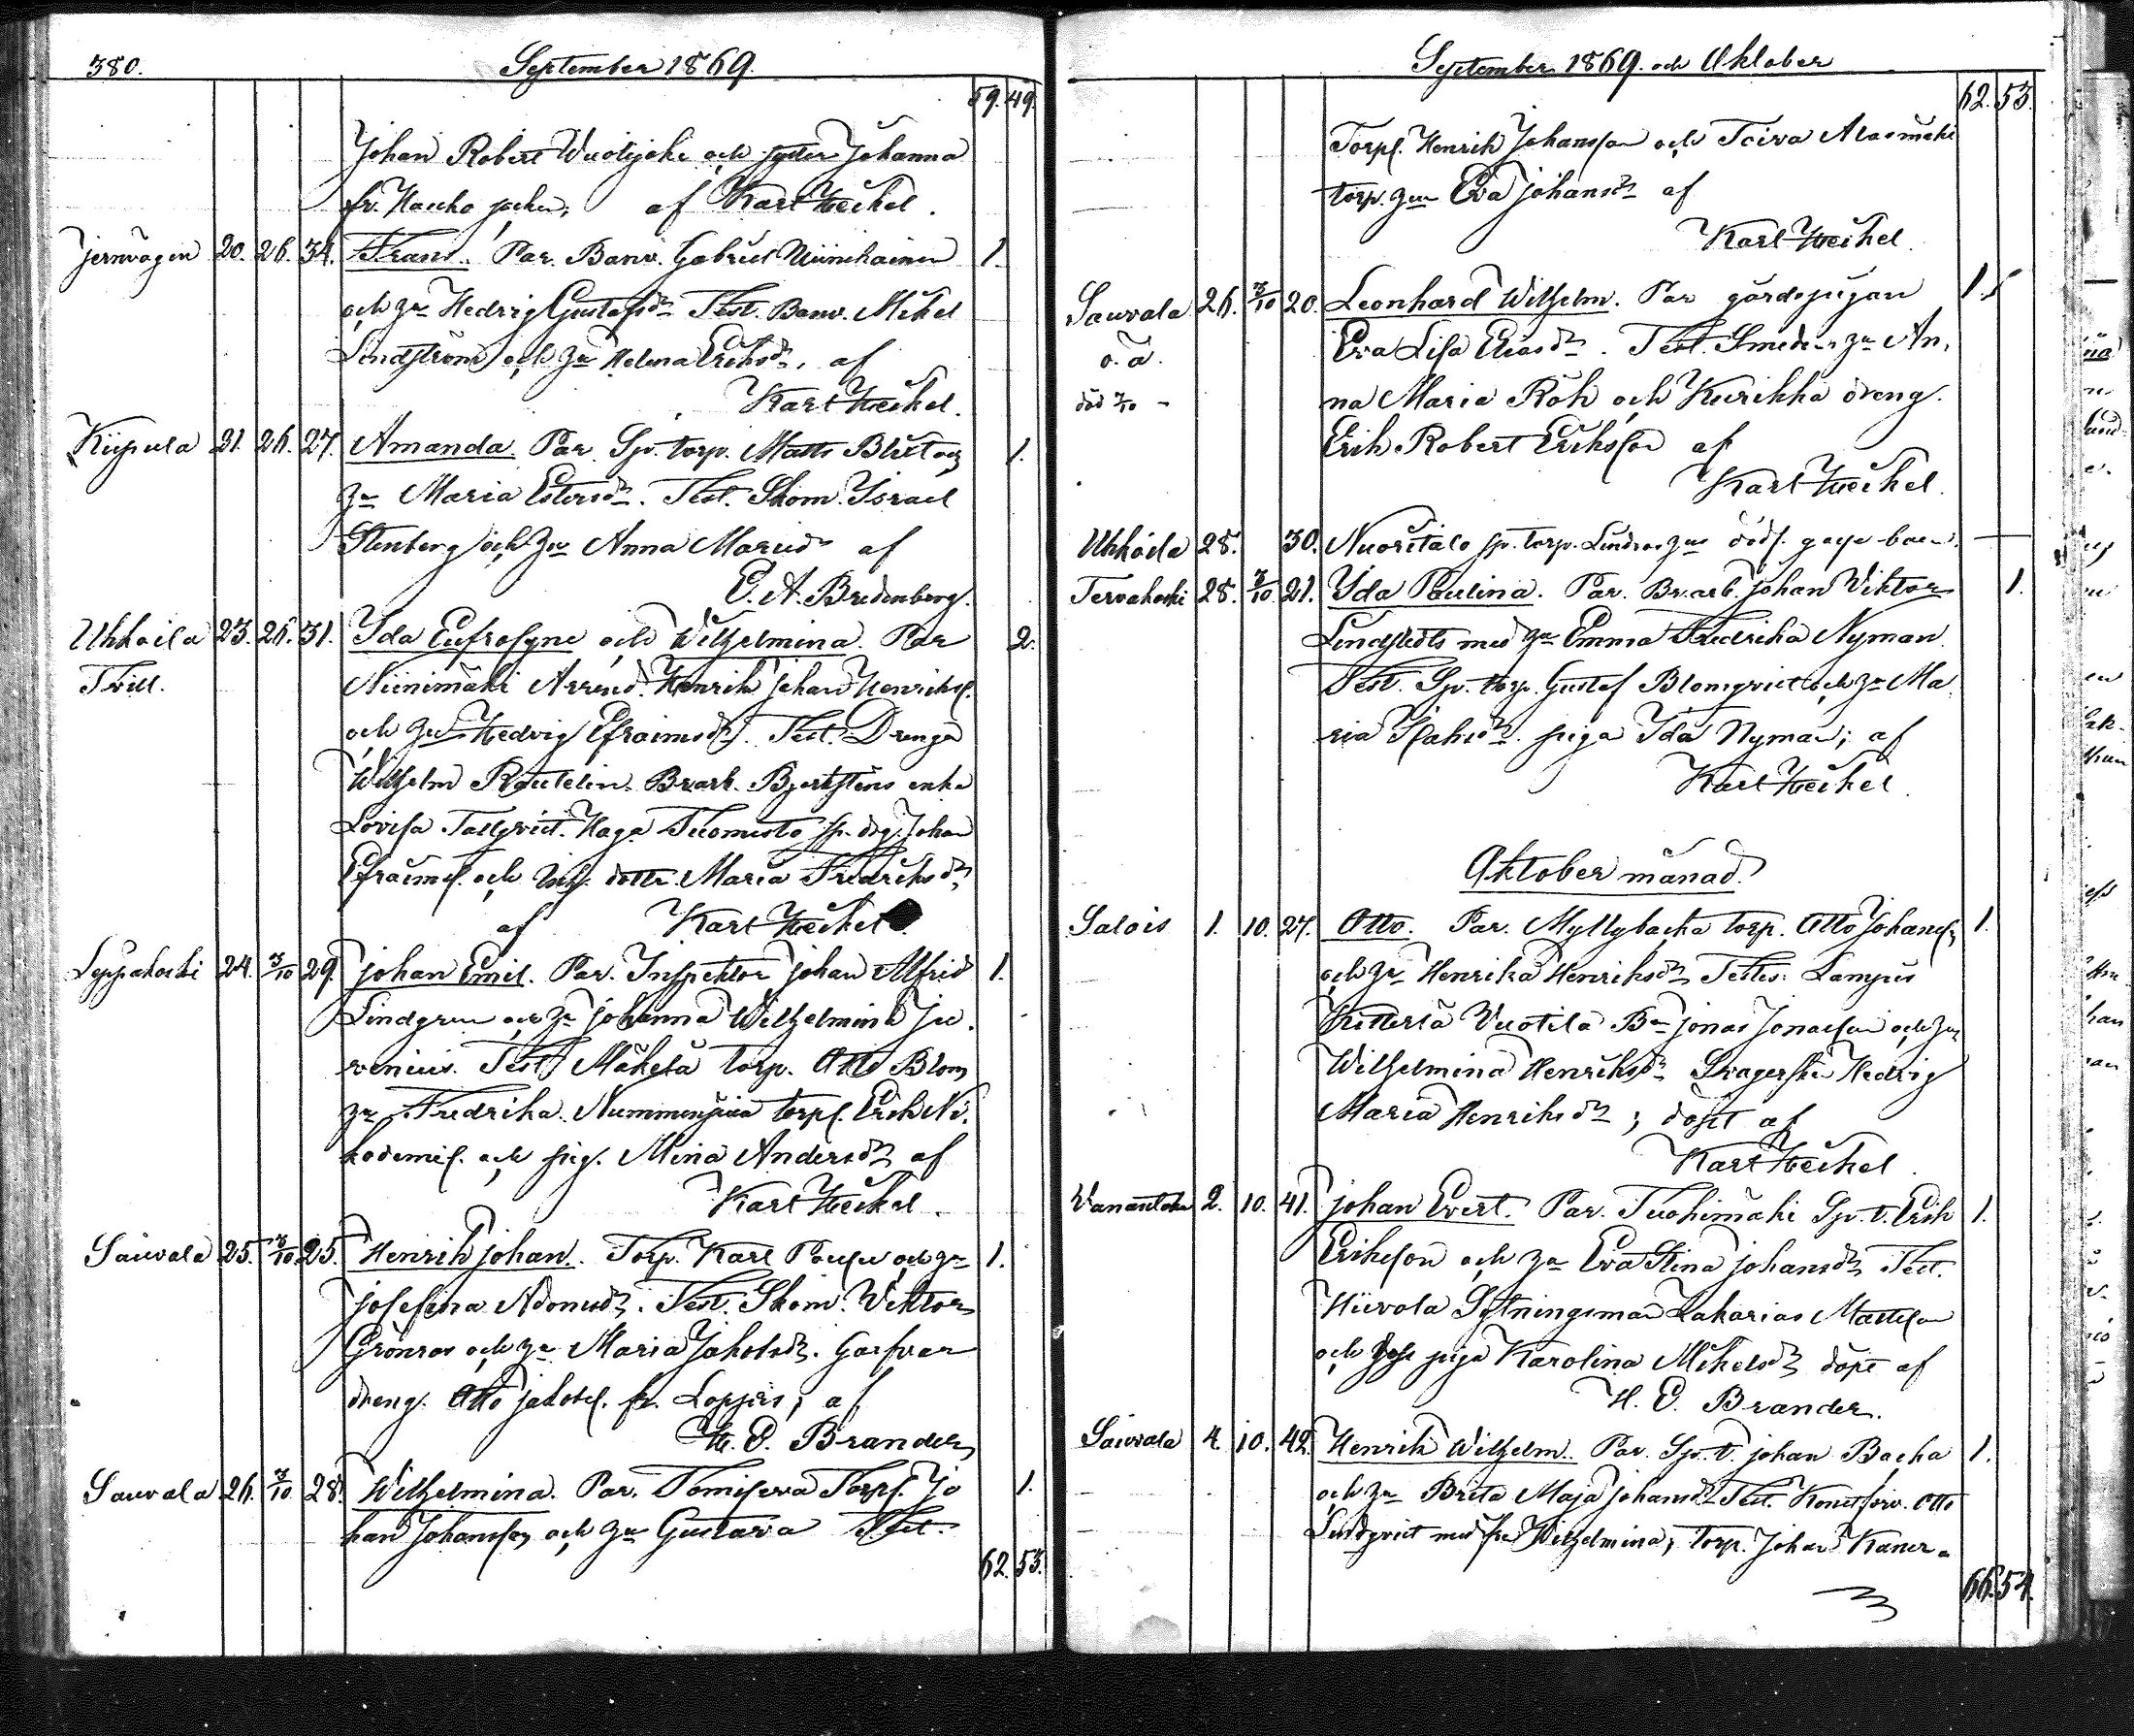 380. September 1869.
59. 49.
Johan Robert Wuotijoki och syster Johanna
fr. Hauho socken, af Karl Heikel.
Jernvägen 20. 26. 34. Frans. Par. Banv. Gabriel Niinikainen 1.
och hu Hedvig Gustafsdr Test. Banv. Mikel
Lindström och hu Helena Eriksdr, af
Karl Heikel.
Kiipula 21. 26. 27. Amanda. Par. Sp. torp. Matts Blict och 1.
hu Maria Estersdr. Test. Skom. Israel
Stenberg och hu Anna Mariedr af
E. A. Bredenberg.
Uhkoila 23. 26. 31. Ida Eufrosyne och Wilhelmina. Par 2.
Tvill. Niinimäki Arrend. Henrik Johan Henriks.
och hu Hedvig Efraimsdr. Test. Dreng
Wilhelm Rautelin. Brarb. Bjerkstens enka
Lovisa Tallqvist. Haga Tuomisto sp. drg. Johan
Efraims. och Inh. dotter Maria Fredriksdr,
af Karl Heikel.
Leppäkoski 24. 3/10 29. Johan Emil. Par. Inspektor Johan Alfrid 1.
Lindgren och hu Johanna Wilhelmina Ju
venius. Test. Mäkelä torp. Otto Blom
hu Fredrika. Nummenpää torps. Erik Ni
kodemis. och pig. Mina Andersdr af
Karl Heikel.
Saivala 25. 3/10 25. Henrik Johan. Torp. Karl Pousu och hu 1.
Josefina Adamsdr. Test. Skom. Viktor
Grönros och hu Maria Jakobsdr. Garfvar
dreng. Otto Jakobs. fr. Loppis; af
H. E. Brander
Sauvala 26. 3/10 28. Wilhelmina. Par. Tomiseva Torps. Jo 1.
han Johansson och hu Gustava Test.
62. 53.
September 1869. och Oktober
62. 53.
Torps. Henrik Johansson och Toiva Alasmäki
torp. hu Eva Johansdr af
Karl Heikel.
Sauvala 26. 3/10 20. Leonhard Wilhelm. Par gårdspigan 1.
o. ä. Eva Lisa Eliasdr. Test. Smeden hu An
död 7/10 - na Maria Rök och Kurikka dreng.
Erik Robert Eriksson af
Karl Heikel.
Uhkoila 28. 30. Nuoritalo sp. torp. Lindros hu dödf. gosse barn. —
Tervakoski 28. 3/10 21. Ida Paulina. Par. Br.arb. Johan Viktor 1.
Lindstedts med hu Emma Fredrika Nyman.
Test. Sp. torp. Gustaf Blomqvist och hu Ma
ria Isaksdr. piga Ida Nyman; af
Karl Heikel.
Oktober månad.
Salois 1. 10. 27. Otto. Par. Myllybacka torp. Otto Johans. 1.
och hu Henrika Henriksdr Testes: Lampis
Kitterlä Vuotila Bn Jonas Jonasson och hu
Wilhelmina Henriksdr Svagerskn Hedvig
Maria Henriksdr; döpt af
Karl Heikel.
Vanantaka 2. 10. 41. Johan Evert. Par. Tuohimäki Sp. t. Erik 1.
Eriksson och hu Eva Stina Johansdr Test.
Hiivola Sytningsman Zakarias Mattsson
och piga Karolina Mikelsdr döpt af
H. E. Brander.
Saivala 4. 10. 42. Henrik Wilhelm. Par. Sp. t. Johan Backa 1.
och hu Brita Maja Johansdr Test. Konstförv. Otto
Lindqvist med fru Wilhelmina; torp. Johan Kaner-
66. 54.